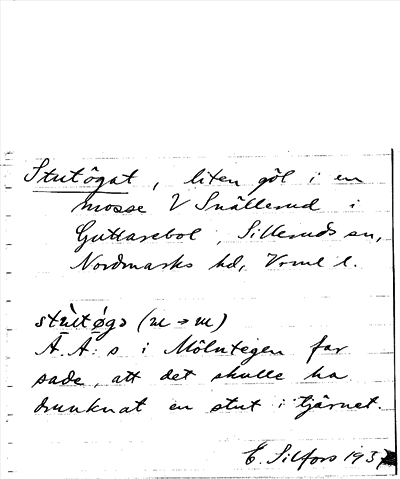 Stutögat, liten göl i en
mosse V Snällerud i
Guttarebol, Silleruds sn,
Nordmarks hd, Vrml l.
stùtø̀gə (u → ɯ)
A. A:s i Mölntegen far
sade, att det skulle ha
drunknat en stut i tjärnet.
E. Silfors 1937